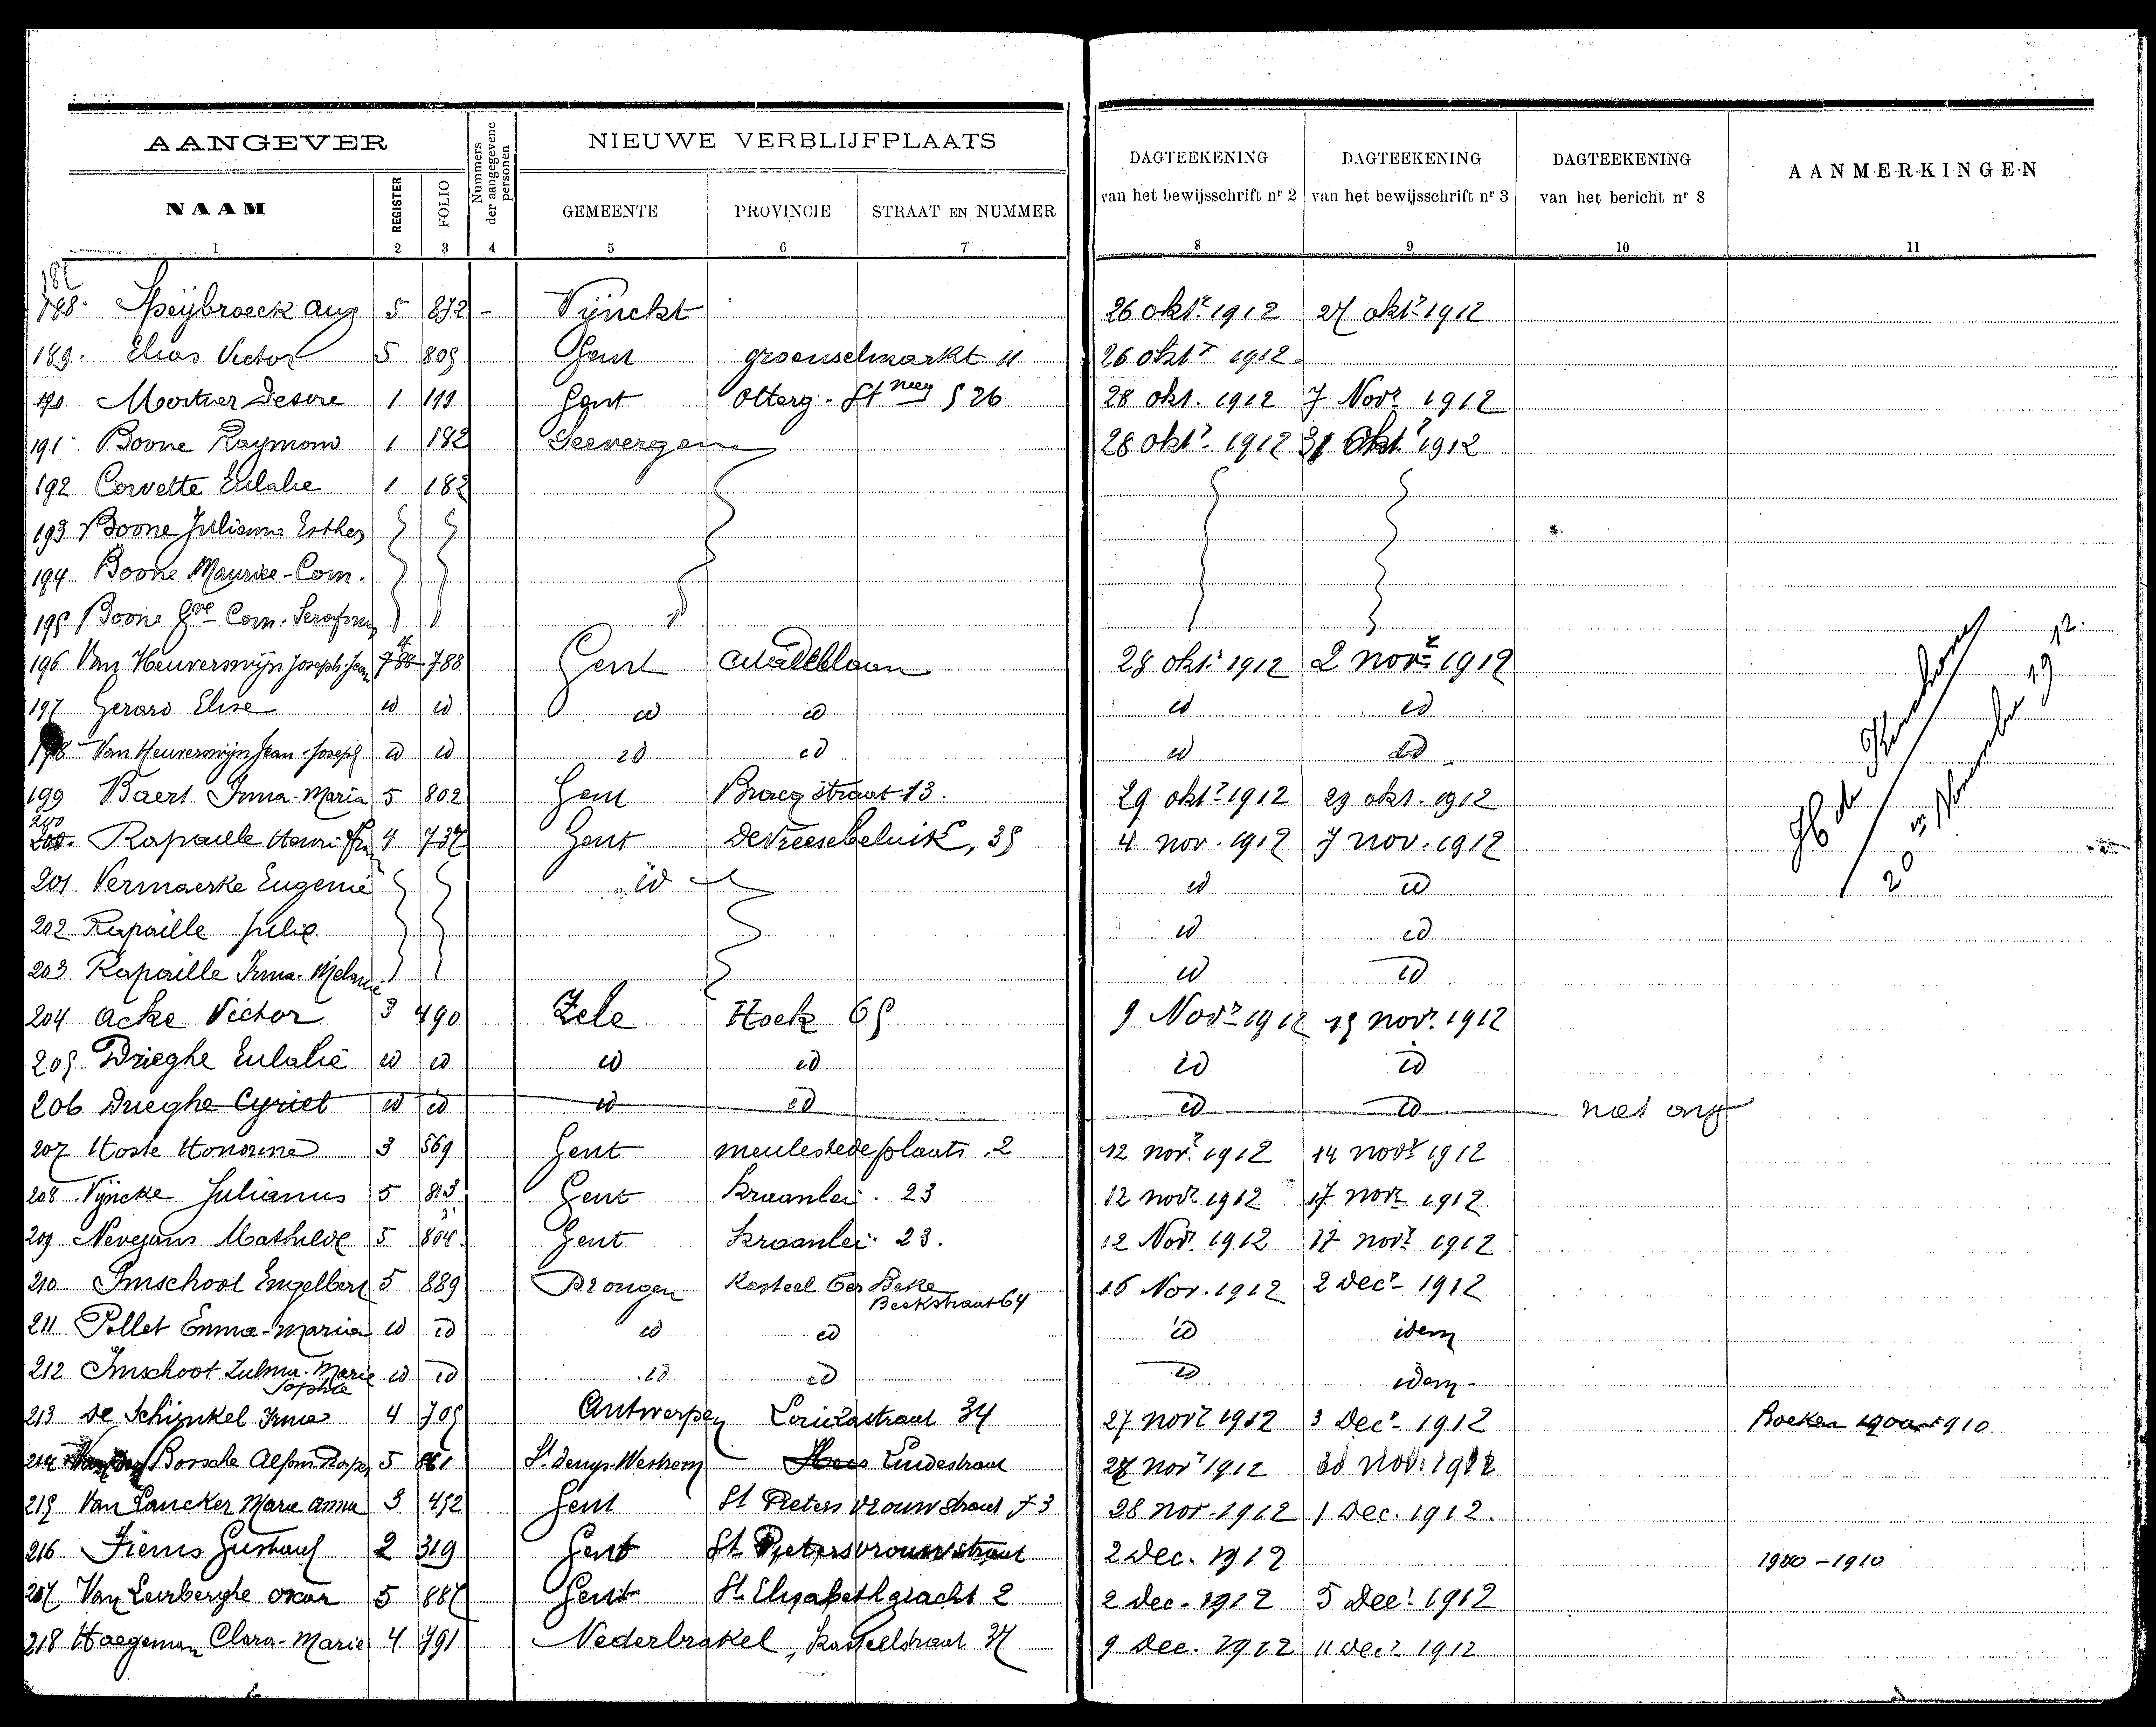 AANGEVER
Nummers der aangegevene personen
NIEUWE VERBLIJFPLAATS
DAGTEEKENING van het bewijsschrift nr 2
DAGTEEKENING van het bewijsschrift nr 3
DAGTEEKENING van het bericht nr 8
AANMERKINGEN
NAAM REGISTER FOLIO GEMEENTE PROVINCIE STRAAT EN NUMMER
1 2 3 4 5 6 7 8 9 10 11
188. Speybroeck Aug 5 872 - Vynckt 26 okt. 1912 27 okt. 1912
189. Elias Victor 5 809 Gent groenselmarkt 11 26 okt. 1912
190 Mortier Desire 1 119 Gent Otterg. St 526 28 okt. 1912 7 Nov. 1912
191 Boone Raymond 1 182 Seevergem 28 okt. 1912 31 Okt. 1912
192 Corvette Eulalie 1 182
193 Boone Julienne Esther
194 Boone Maurice-Corn.
195 Boone Corn. Serafine
196 Van Heuverswijn Joseph-Jean 788 Gent 28 okt. 1912 2 nov. 1912
197 Gerard Elise id id id id id id
198 Van Heuverswijn Jean-Joseph id id id id id id
199 Baert Irma-Maria 5 802 Gent Braeystraat 13. 29 okt. 1912 29 okt. 1912
200 Rapaille Henri 4 737 Gent De Vreesebeluik, 35 4 nov. 1912 7 nov. 1912
201 Vermaerke Eugenie id id id
202 Rapaille Julie id id
203 Rapaille Irma-Melanie id id
204 Acke Victor 3 490 Zele Hoek 65 9 Nov. 1912 15 nov. 1912
205 Drieghe Eulalie id id id id id id
206 Drieghe Cyriel id id id id id id niet
207 Hoste Honorine 3 569 Gent meulestedeplaats 2 12 nov. 1912 14 nov. 1912
208 Vyncke Julianus 5 813 Gent Kraanlei. 23 12 nov. 1912 17 nov. 1912
209 Nevejans Mathilde 5 804. Gent Kraanlei. 23. 12 Nov. 1912 17 nov. 1912
210 Imschoot Engelbert 5 889 Drongen Kasteel ter Beke 16 Nov. 1912 2 Dec. 1912
Beekstraat 64
211 Pollet Emma-Maria id id id id id idem
212 Imschoot Zulma-Marie id id id id id idem
Sophie
213 De Schynkel Irma 4 705 Antwerpen Louizastraat 34 27 nov. 1912 3 Dec. 1912 Boeken 1900-1910
214 Bossche Alfons 5 861 St. Denys-Westrem Lindestraat 27 nov. 1912 30 nov. 1912
215 Van Lancker Marie Anna 3 452 Gent St Pieters vrouwstraat 73 28 nov. 1912 1 Dec. 1912.
216 Fiems Gustaaf 2 319 Gent St. Pietersvrouwstraat 2 Dec. 1912 1900-1910
217 Van Leirberghe Oscar 5 887 Gent St. Elisabethgracht 2 2 dec. 1912 5 Dec. 1912
218 Haegeman Clara-Marie 4 791 Nederbrakel, Kasteelstraat 37 9 Dec. 1912 11 Dec. 1912